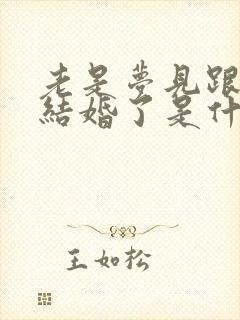 老是夢見跟
結婚了是什
王如松